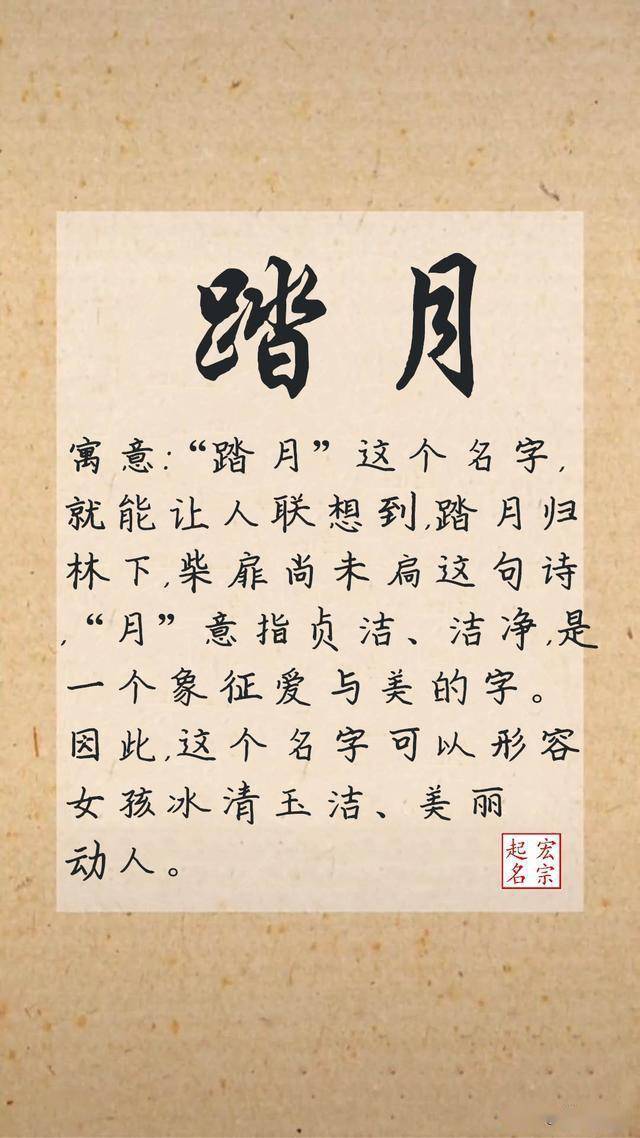 踏月
寓意:“踏月”这个名字,
就能让人联想到,踏月归
林下,柴扉尚未扃这句诗
,“月”意指贞洁、洁净,是
一个象征爱与美的字。
因此,这个名字可以形容
女孩冰清玉洁、美丽
动人。
宏宗
起名